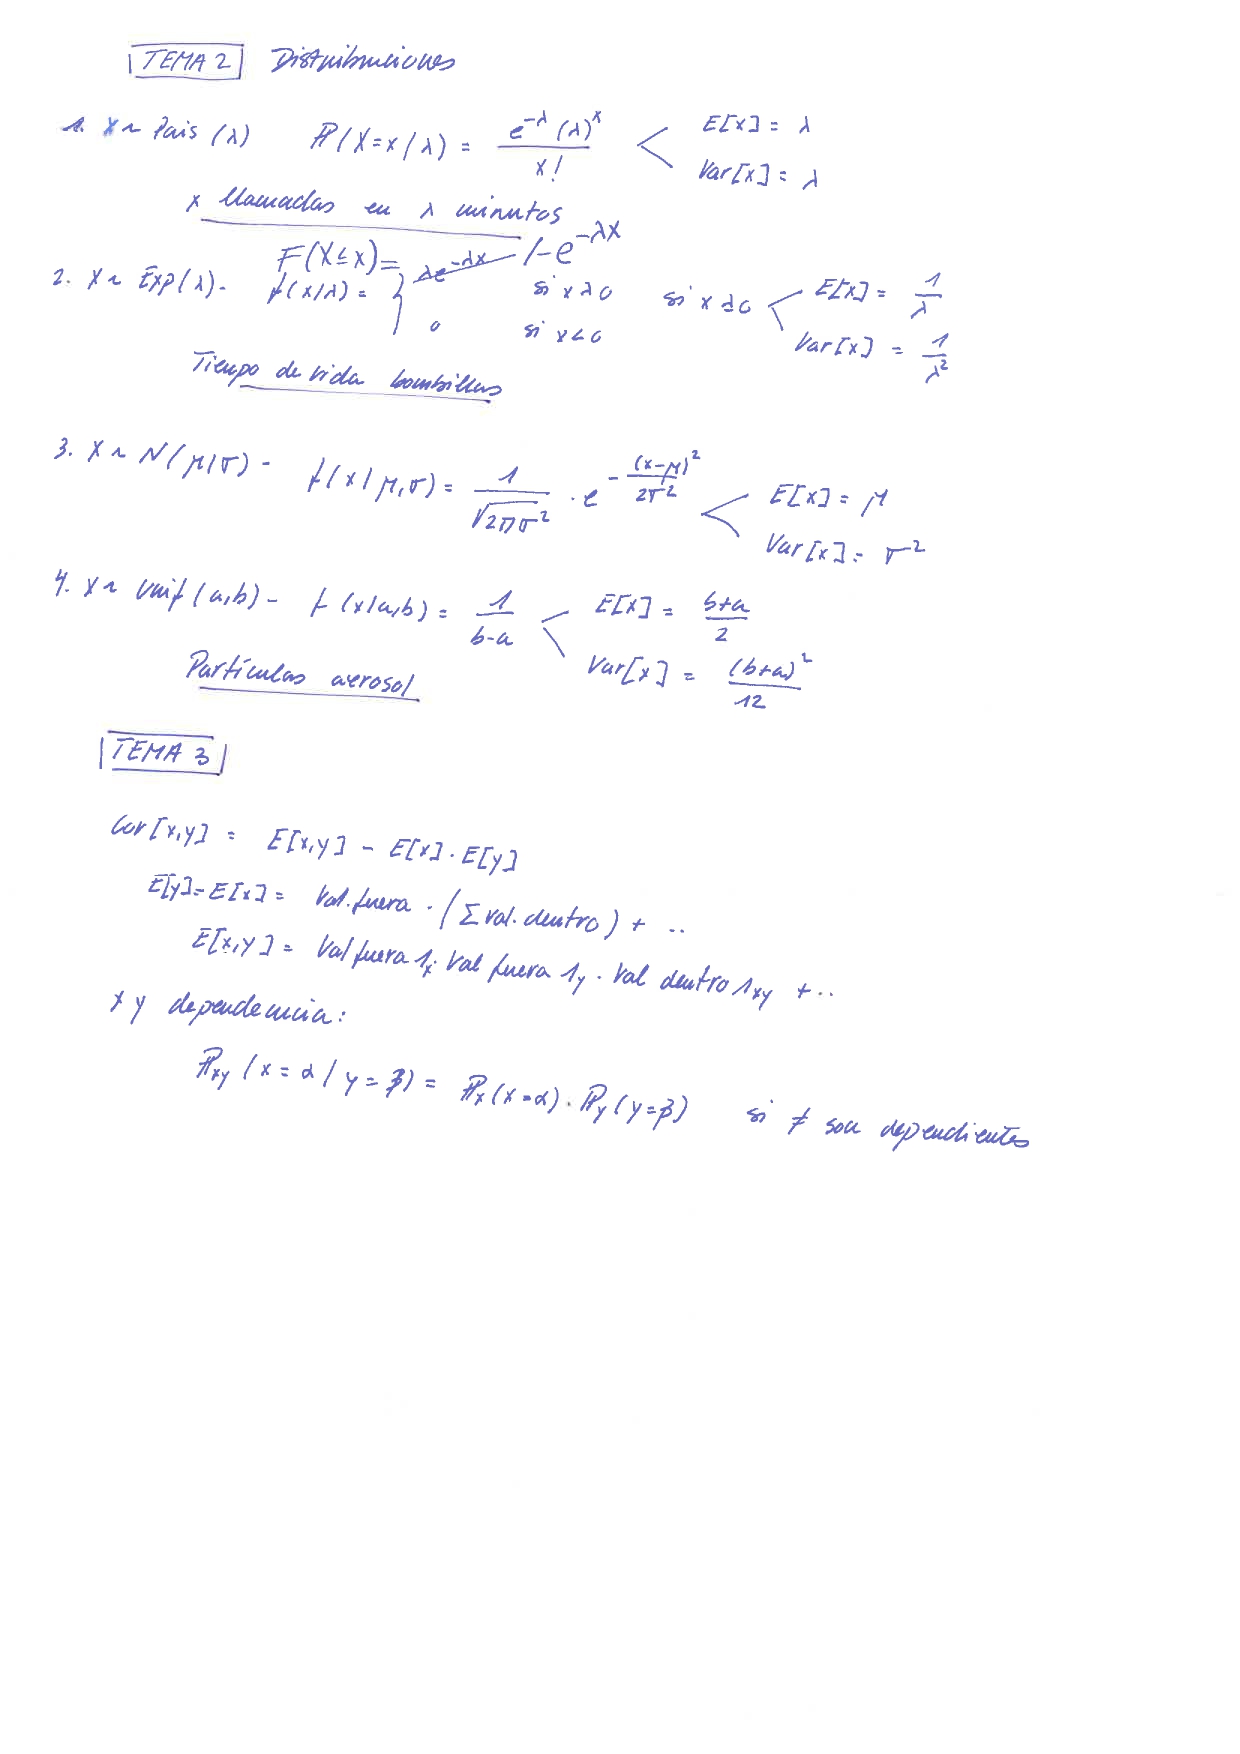 TEMA 2 Distribuciones
1. X ~ Pois (λ) P(X=x/λ) = e^-λ (λ)^x / x! E[x] = λ
Var[x] = λ
x llamadas en λ minutos
F(X≤x)= 1-e^-λx
2. X ~ Exp(λ)- f(x/λ) = { λe^-λx si x≥0 si x≥0 E[x] = 1/λ
0 si x<0 Var[x] = 1/λ^2
Tiempo de vida bombillas
3. X ~ N(μ,σ) - f(x/μ,σ) = 1/√2πσ^2 · e^-(x-μ)^2/2σ^2 E[x] = μ
Var[x] = σ^2
4. X ~ Unif(a,b) - f(x/a,b) = 1/b-a E[x] = b+a/2
Var[x] = (b+a)^2/12
Partículas aerosol
TEMA 3
Cov[x,y] = E[x,y] - E[x] · E[y]
E[y]=E[x] = Val.fuera · (Σ val. dentro) + ..
E[x,y] = Val fuera 1x · Val fuera 1y · Val dentro 1xy + ..
x y dependencia:
Pxy (x=α / y=β) = Px(x=α) · Py(y=β) si ≠ son dependientes